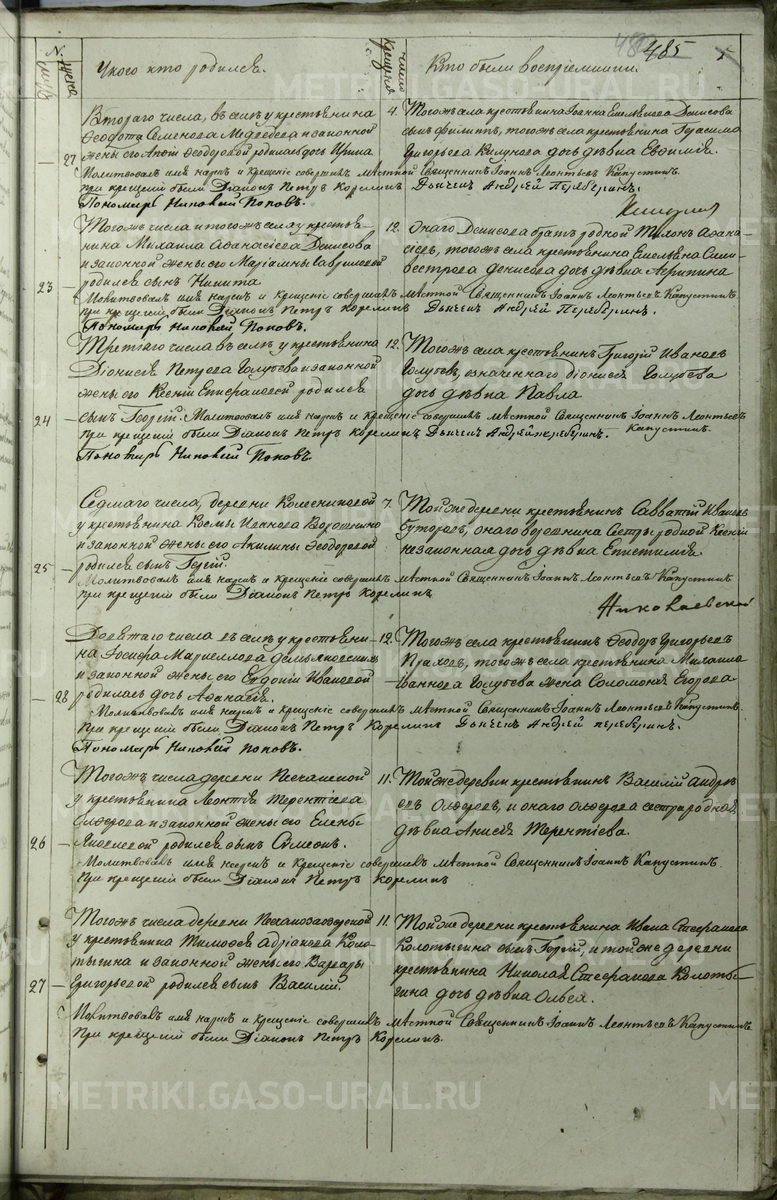 485
N.
мужеска
женска
У кого кто родился.
число крещения
Кто были восприемники.
Втораго числа, въ селѣ у крестьянина
Ѳеодота Семенова Медведева и законной
жены его Ѳеодоровой родилась дочь Ирина
27
Молитвовалъ имя нарекъ и Крещеніе совершилъ мѣстной Священникъ Іоаннъ Леонтьевъ Капустинъ.
при крещеніи были Діаконъ Петръ Корелинъ Дьячекъ Андрей Переберинъ.
Пономарь Поповъ.
4. Тогожъ села крестьянина Іоанна Емельянова Денисова
сынъ Филиппъ, тогожъ села крестьянина Герасима
Григорьева дочь дѣвка Евфимія.
Тогожъ числа и тогожъ села у крестья-
нина Михаила Аѳанасіева Денисова
и законной жены его Маріамны Гавриловой
родился сынъ Никита
23
Молитвовалъ имя нарекъ и Крещеніе совершилъ мѣстной Священникъ Іоаннъ Леонтьевъ Капустинъ
при крещеніи были Діаконъ Петръ Корелинъ Дьячекъ Андрей Переберинъ.
Пономарь Поповъ.
12. Онаго Денисова братъ родной Тихонъ Аѳана-
сіевъ, тогожъ села крестьянина Емельяна Сили-
вестрова Денисова дочь дѣвка Агрипина
Третіаго числа въ селѣ у крестьянина
Діонисія Петрова Голубева и законной
жены его Ксеніи Епифановой родился
24
сынъ Георгій. Молитвовалъ имя нарекъ и Крещеніе совершилъ мѣстной Священникъ Іоаннъ Леонтьевъ Капустинъ.
при крещеніи были Діаконъ Петръ Корелинъ Дьячекъ Андрей Переберинъ.
Пономарь Поповъ.
12. Тогожъ села крестьянинъ Григорій Ивановъ
Голубевъ, означеннаго Діонисія Голубева
дочь дѣвка Павла
Седмаго числа, деревни Колесниковой
у крестьянина Козмы Иванова
и законной жены его Акилины Ѳеодоровой
родился сынъ Георгій.
25
Молитвовалъ имя нарекъ и Крещеніе совершилъ мѣстной Священникъ Іоаннъ Леонтьевъ Капустинъ
при крещеніи были Діаконъ Петръ Корелинъ
7. Тойже деревни крестьянинъ Савватій Ивановъ
Буторовъ, онаго сестры родной Ксеніи
незаконная дочь дѣвка Епистилія.
Николаевской
Девятаго числа въ селѣ у крестьяни-
на Іосифа
и законной жены его Евдокіи Ивановой
родилась дочь Аѳанасія.
28
Молитвовалъ имя нарекъ и Крещеніе совершилъ мѣстной Священникъ Іоаннъ Леонтьевъ Капустинъ.
При крещеніи были Діаконъ Петръ Корелинъ Дьячекъ Андрей Переберинъ.
Пономарь Поповъ.
12. Тогожъ села крестьянинъ Ѳеодоръ Григорьевъ
тогожъ села крестьянина Михаила
Іоаннова Голубева жена Соломонія Егорова
Тогожъ числа деревни Песчаной
у крестьянина Леонтія Терентіева
и законной жены его Елены
Яковлевой родился сынъ Симеонъ.
26
Молитвовалъ имя нарекъ и Крещеніе совершилъ мѣстной Священникъ Іоаннъ Капустинъ.
При крещеніи были Діаконъ Петръ Корелинъ
11. Тойже деревни крестьянинъ Василій Андре-
евъ и онаго сестра родная
дѣвка Анисія Терентіева.
Тогожъ числа деревни
у крестьянина Тимоѳея Адріанова Коло-
тыгина и законной жены его Варвары
Григорьевой родился сынъ Василій.
27
Молитвовалъ имя нарекъ и Крещеніе совершилъ мѣстной Священникъ Іоаннъ Леонтьевъ Капустинъ
При крещеніи были Діаконъ Петръ Корелинъ.
11. Тойже деревни крестьянина Ивана Стефанова
Колотыгина сынъ Георгій, и тойже деревни
крестьянина Николая Стефанова Колоты-
гина дочь дѣвка Ольга.
METRIKI.GASO-URAL.RU